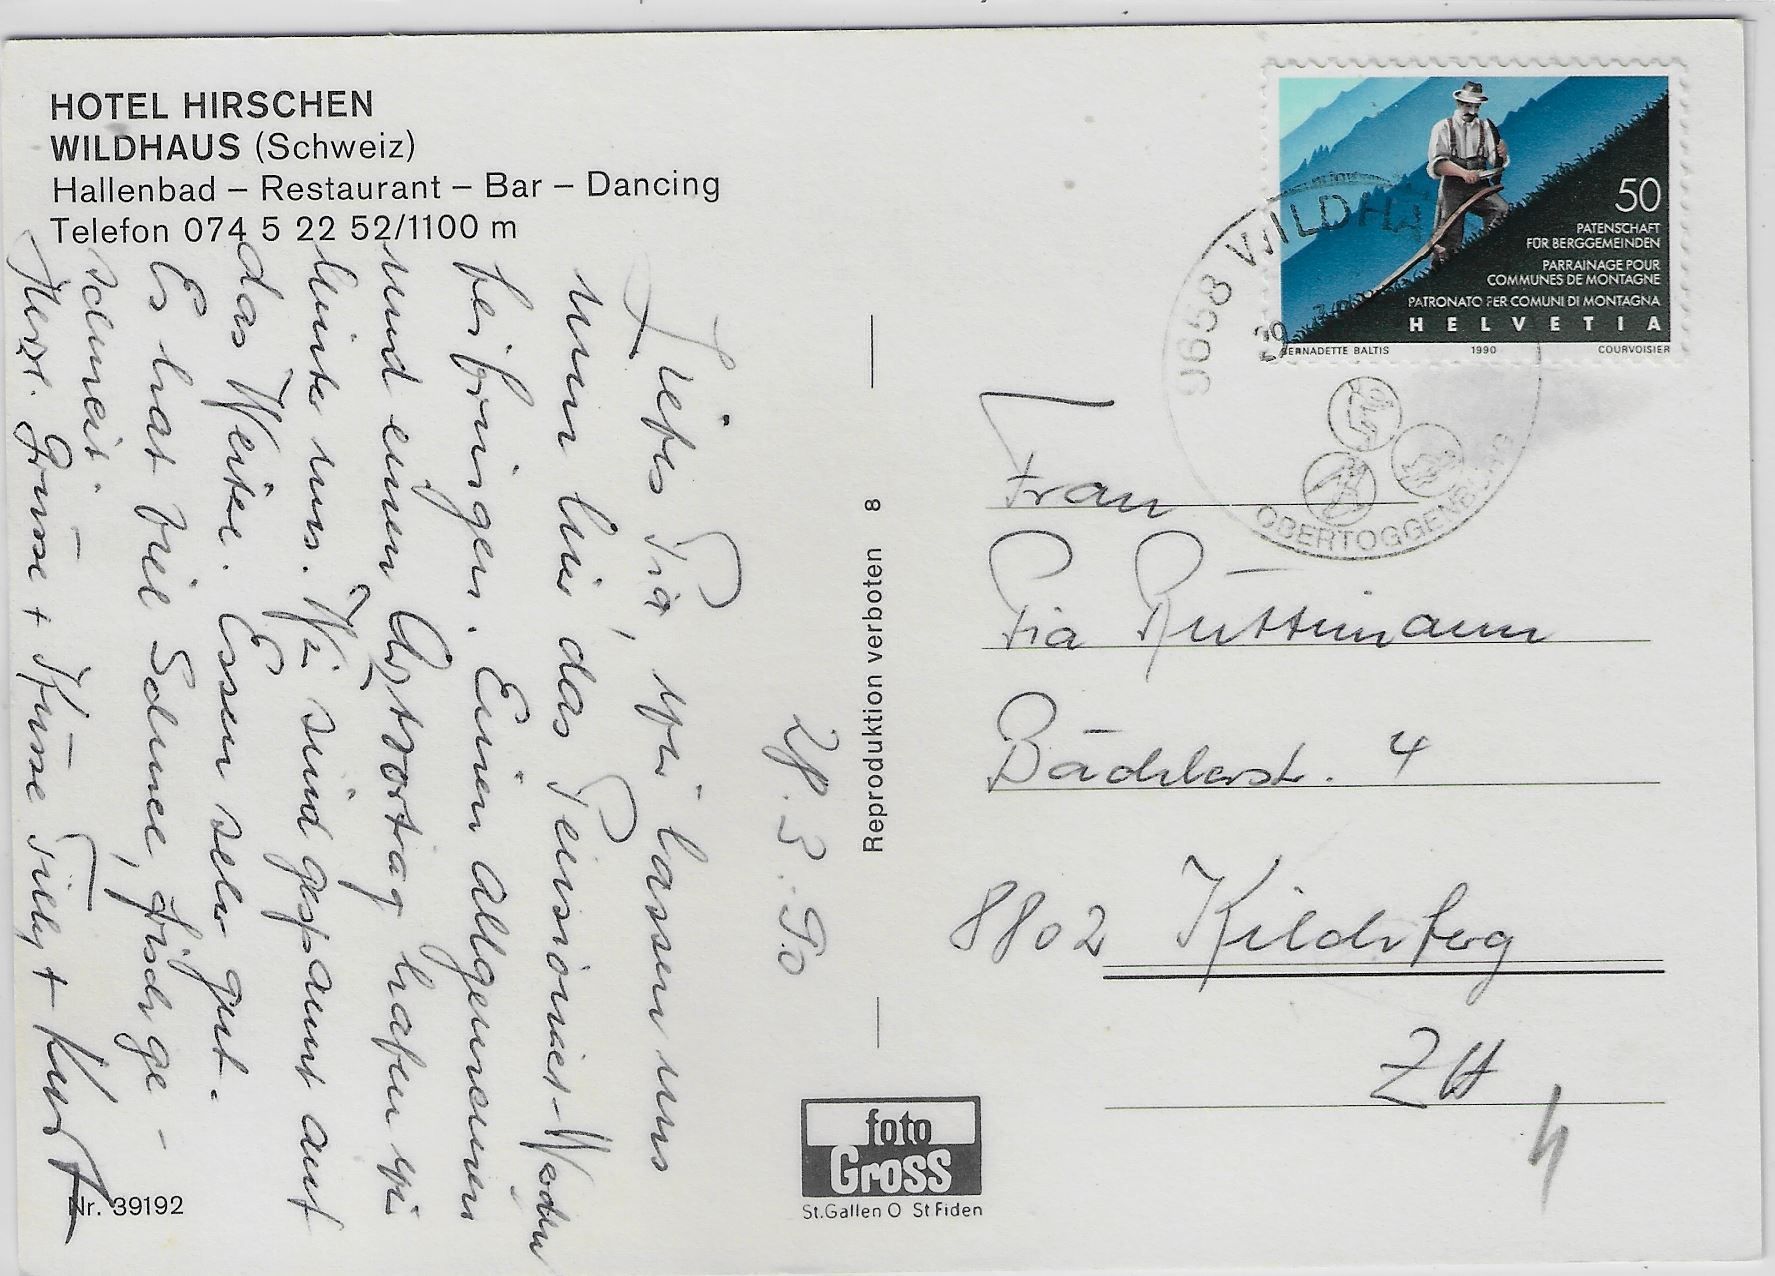 HOTEL HIRSCHEN
WILDHAUS (Schweiz)
Hallenbad – Restaurant – Bar – Dancing
Telefon 074 5 22 52/1100 m
28.3.90
Liebes Pia, wir lassen uns
nun hier das Pensionier-Wochen
beibringen. Einen allgemeinen
und einen Arztvortrag haben wir
hinter uns. Wir sind gespannt auf
das Weitere. Essen sehr gut.
Es hat viel Schnee, frisch ge-
schneit.
Herzl. Grüsse + Küsse Tilly + Kurt
Nr. 39192
Reproduktion verboten 8
foto
Gross
St.Gallen O St Fiden
50
PATENSCHAFT
FÜR BERGGEMEINDEN
PARRAINAGE POUR
COMMUNES DE MONTAGNE
PATRONATO PER COMUNI DI MONTAGNA
HELVETIA
BERNADETTE BALTIS 1990 COURVOISIER
9658 WILDHA
29
OBERTOGGENBURG
Frau
Pia Rüttimann
Bächlerstr. 4
8802 Kilchberg
ZH